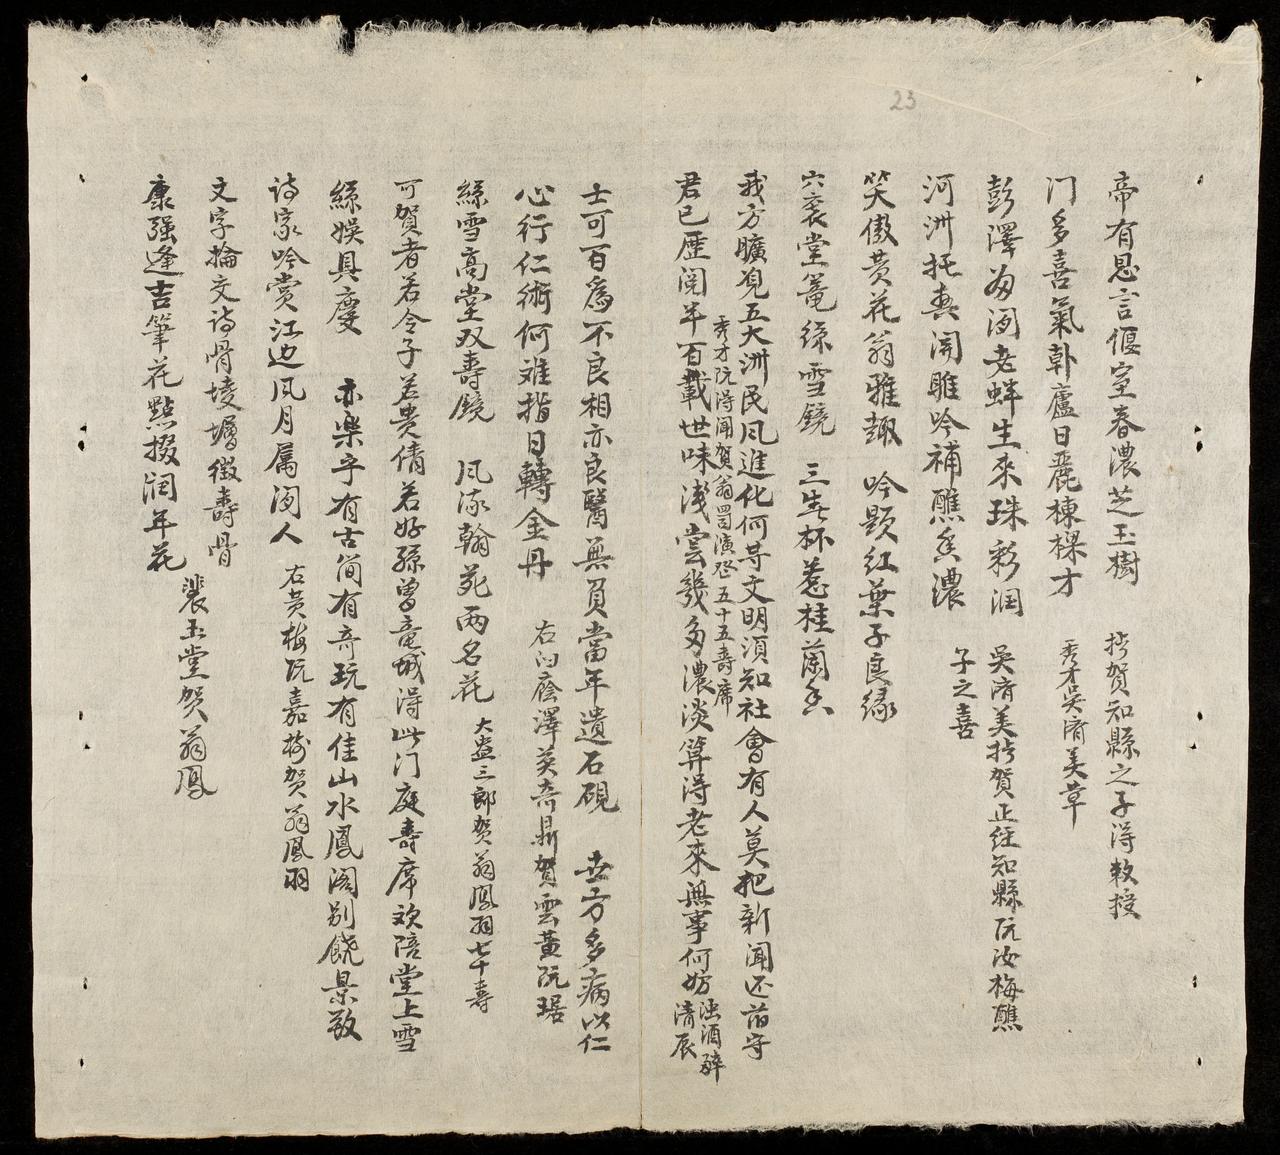 23
帝有恩言偃室春濃芝玉樹
抄賀知縣之子得教授
门多喜氣韩廬日麗棟樑才
秀才吳濟美草
彭澤勿闭老蚌生來珠彩润
吳濟美抄賀正任知縣阮汝梅醮
子之喜
河洲托興開雎吟補醮香濃
笑傲黄花翁雅趣 吟题红葉子良缘
六袠堂篭綵雪鏡 三生杯惹桂蘭香
我方曠覌五大洲民风進化何等文明須知社會有人莫把新聞还旧守
秀才阮得聞賀翁蜀演登五十五壽席
君已歷阅年百載世味淺嘗幾多濃淡算得老來無事何妨浊酒醉
清辰
士可百為不良相亦良醫無負當年遺石硯 世方多病以仁
心行仁術何难指日轉金丹 右白蔭澤英奇鼎賀雲黄阮琚
綵雪高堂双壽鏡 风流翰苑两名花 大盎三郎贺翁鳳羽七十壽
可賀者若令子若贵倩若好孫曽竜城得此门庭壽席欢陪堂上雪
綵娛具慶 亦楽乎有古简有奇玩有佳山水鳳阁别饒景致
诗家吟赏江边风月属闲人 右黄梅阮嘉樹贺翁鳳羽
文字掄交诗骨堎嶒徴壽骨
康强逢吉筆花點掇润年花
裴玉堂贺翁鳳